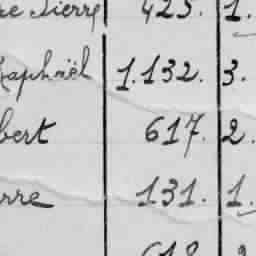 Pierre 423. 1.
Raphaël 1.132. 3.
bert 617. 2.
rre 131. 1.
618